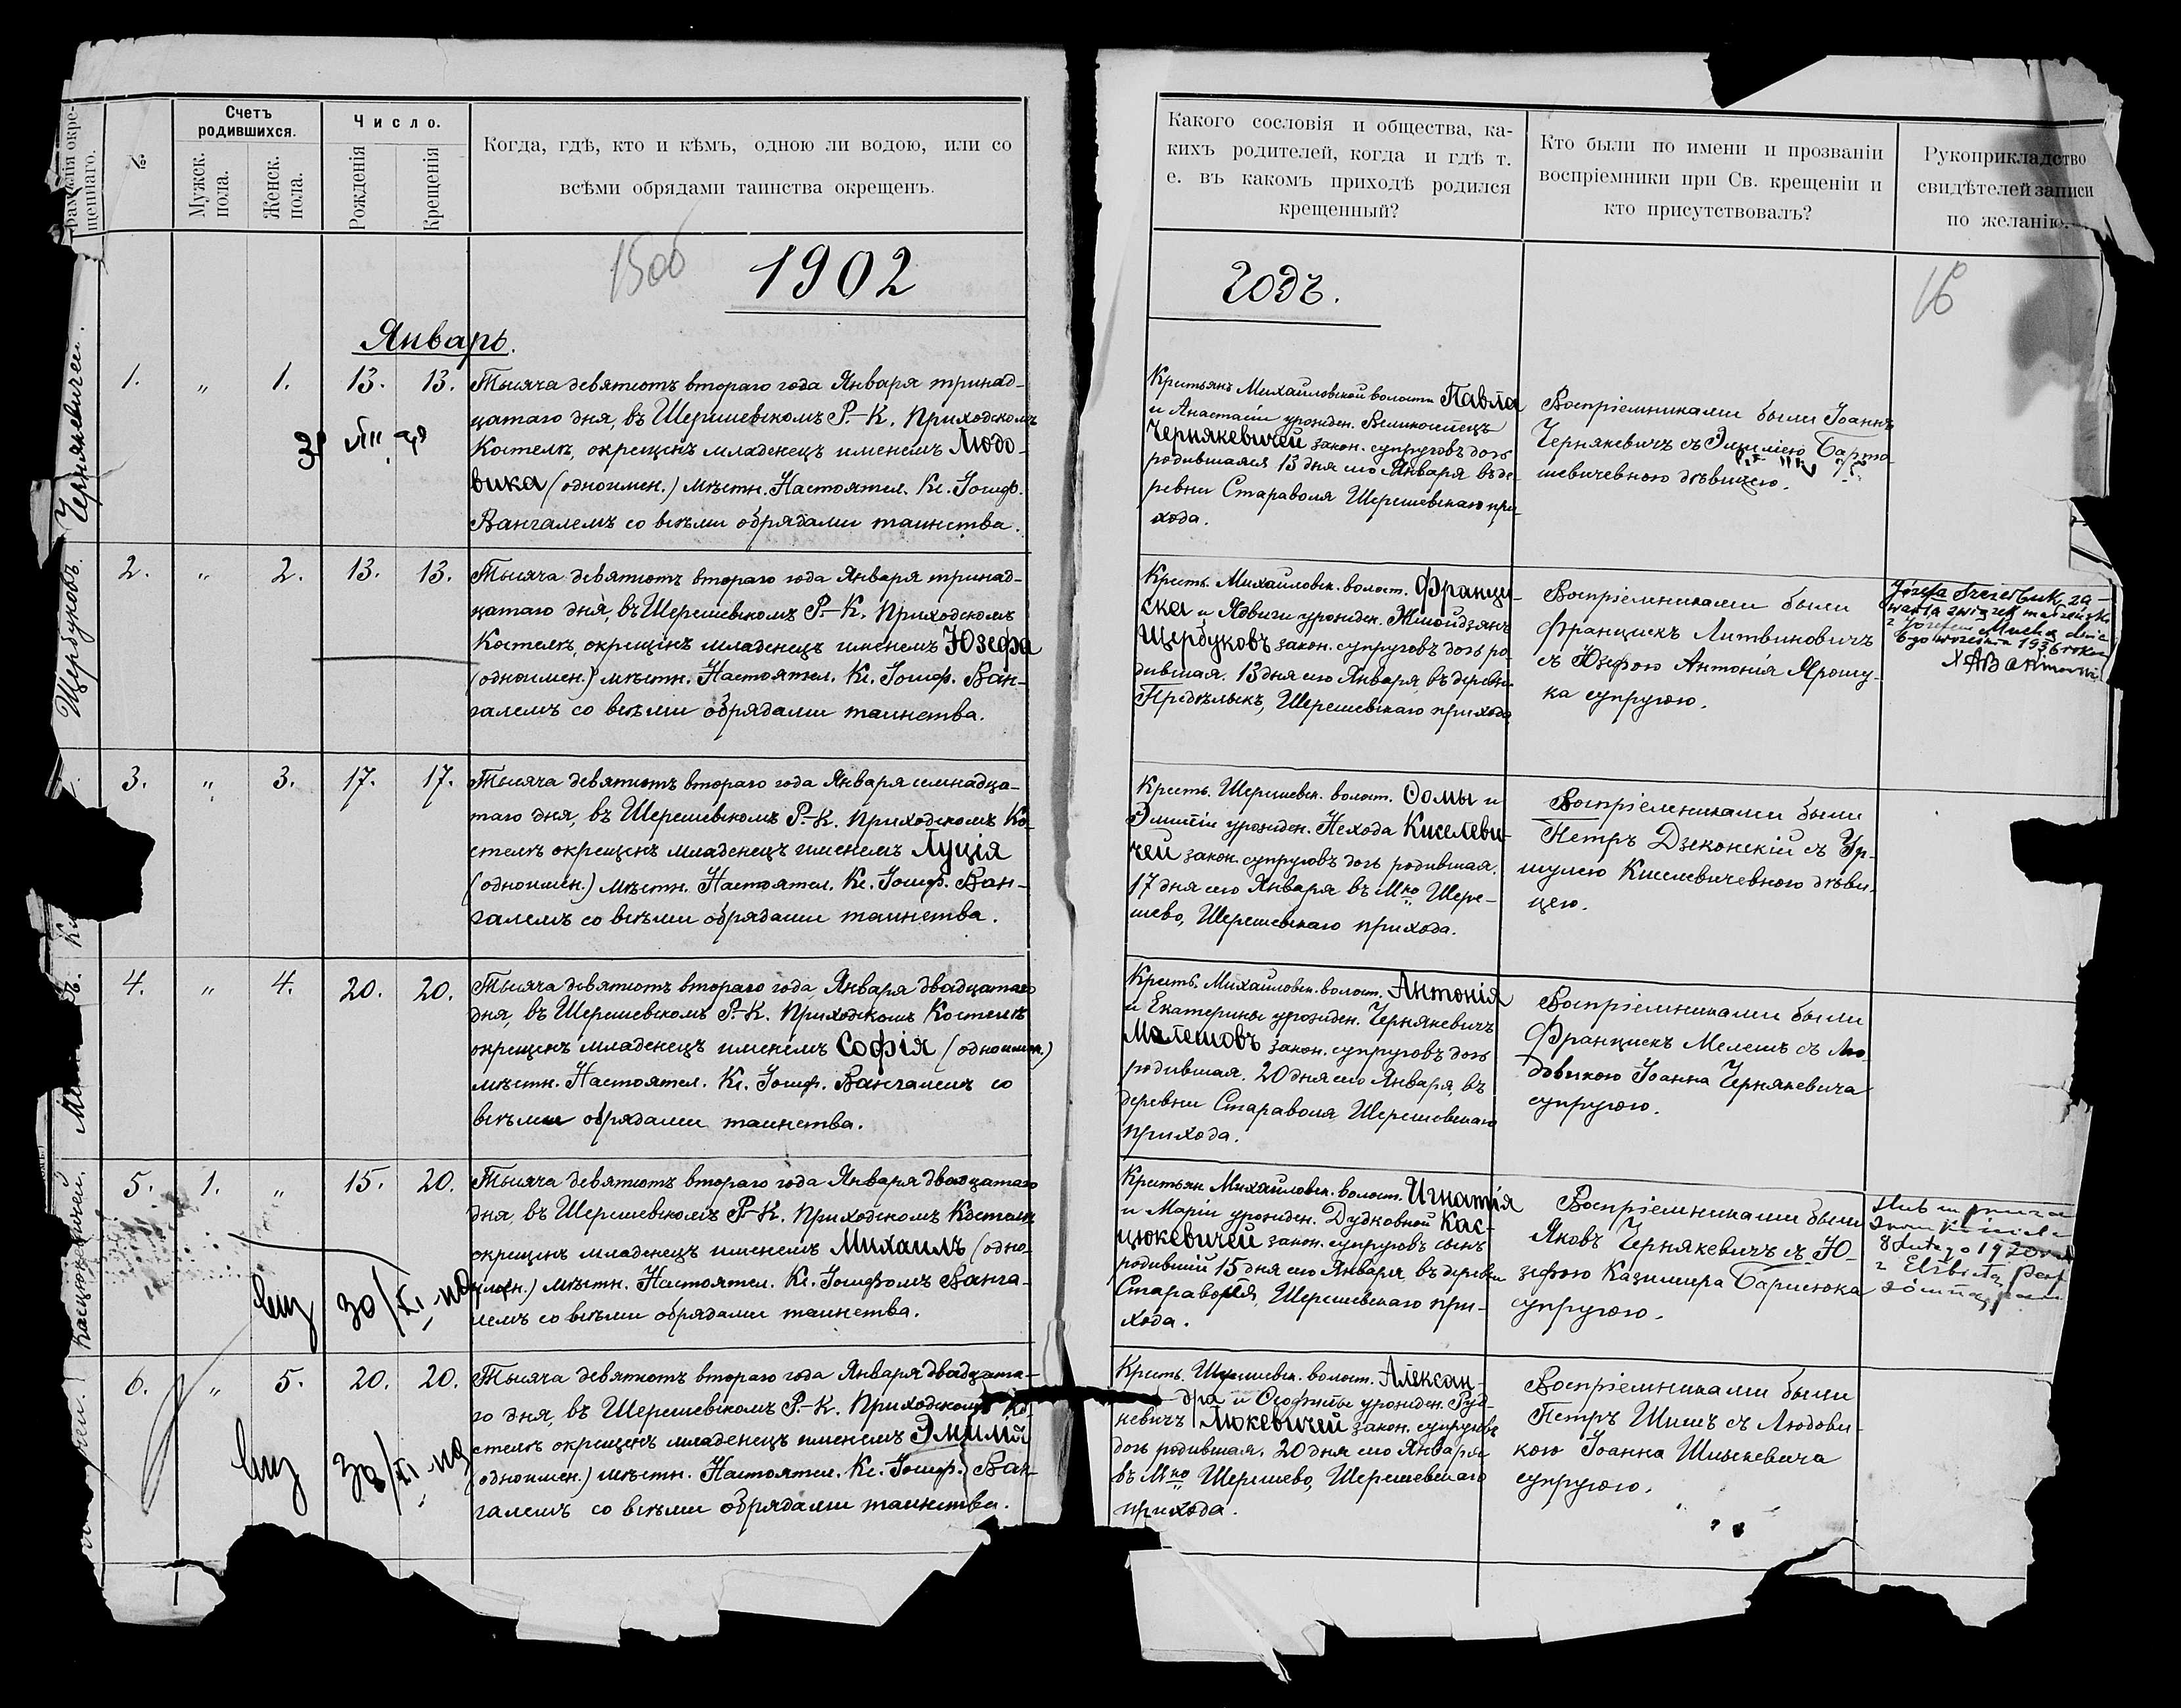 Фамилія окре-
щеннаго.
№
Счетъ
родившихся.
Мужск.
пола.
Женск.
пола.
Число.
Рожденія
Крещенія
Когда, гдѣ, кто и кѣмъ, одною ли водою, или со
всѣми обрядами таинства окрещенъ.
Какого сословія и общества, ка-
кихъ родителей, когда и гдѣ т.
е. въ какомъ приходѣ родился
крещенный?
Кто были по имени и прозваніи
воспріемники при Св. крещеніи и
кто присутствовалъ?
Рукоприкладство
свидѣтелей записи
по желанію.
1902
годъ.
16
Январь.
Чернякевичей.
1. " 1. 13. 13.
Тысяча девятьсотъ втораго года Января тринад-
цатаго дня, въ Шерешевскомъ Р.-К. Приходскомъ
Костелѣ, окрещенъ младенецъ именемъ Людо-
вика (одноимен.) мѣстн. Настоятел. Кс. Іосиф.
Вангалемъ со всѣми обрядами таинства.
Крестьянъ Михайловской волости Павла
и Анастасіи урожден.
Чернякевичей закон. супруговъ дочь
родившаяся 13 дня сего Января въ де-
ревни Стараволя Шерешевскаго при-
хода.
Воспріемниками были Іоаннъ
Чернякевичъ съ Эмиліею Барто-
шевичевною дѣвицею.
Щербуковъ.
2. " 2. 13. 13.
Тысяча девятьсотъ втораго года Января тринад-
цатаго дня, въ Шерешевскомъ Р.-К. Приходскомъ
Костелѣ, окрещенъ младенецъ именемъ Юзефа
(одноимен.) мѣстн. Настоятел. Кс. Іосиф. Ван-
галемъ со всѣми обрядами таинства.
Кресть. Михайловск. волост. Францы-
ска и Ядвиги урожден. Жмойдзянъ
Щербуковъ закон. супруговъ дочь ро-
дившая. 13 дня сего Января, въ деревни
Шерешевскаго прихода
Воспріемниками были
Францискъ Литвиновичъ
съ Юзефою Антонія Ярошу-
ка супругою.
Józefa Szczerbuk, za-
warła związek małżeński
z Józefem Mucha dnia
6go września 1936 roku
3. " 3. 17. 17.
Тысяча девятьсотъ втораго года Января семнадца-
таго дня, въ Шерешевскомъ Р.-К. Приходскомъ Ко-
стелѣ окрещенъ младенецъ именемъ Луція
(одноимен.) мѣстн. Настоятел. Кс. Іосиф. Ван-
галемъ со всѣми обрядами таинства.
Кресть. Шерешевск. волост. Ѳомы и
Эмиліи урожден. Нехода Киселеви-
чей закон. супруговъ дочь родившая.
17 дня сего Января въ Мко Шере-
шево, Шерешевскаго прихода.
Воспріемниками были
Петръ Дзеконскій съ Ур-
шулею Киселевичевною дѣви-
цею.
4. " 4. 20. 20.
Тысяча девятьсотъ втораго года Января двадцатаго
дня, въ Шерешевскомъ Р.-К. Приходскомъ Костелѣ
окрещенъ младенецъ именемъ Софія (одноимен.)
мѣстн. Настоятел. Кс. Іосиф. Вангалемъ со
всѣми обрядами таинства.
Кресть. Михайловск. волост. Антонія
и Екатерины урожден. Чернякевичъ
Малешовъ закон. супруговъ дочь
родившая. 20 дня сего Января, въ
деревни Стараволя, Шерешевскаго
прихода.
Воспріемниками были
Францискъ Мелешъ съ Лю-
довикою Іоанна Чернякевича
супругою.
Касцюкевичей.
5. 1. " 15. 20.
Тысяча девятьсотъ втораго года Января двадцатаго
дня, въ Шерешевскомъ Р.-К. Приходскомъ Костелѣ
окрещенъ младенецъ именемъ Михаилъ (одно-
имен.) мѣстн. Настоятел. Кс. Іосифомъ Ванга-
лемъ со всѣми обрядами таинства.
Крестьян. Михайловск. волост. Игнатія
и Маріи урожден. Дудковной Кас-
цюкевичей закон. супруговъ сынъ
родивший 15 дня сего Января, въ деревни
Стараволя, Шерешевскаго при-
хода.
Воспріемниками были
Яковъ Чернякевичъ съ Ю-
зефою Казимира Барисюка
супругою.
z Elżbietą
6. " 5. 20. 20.
Тысяча девятьсотъ втораго года Января двадцата-
го дня, въ Шерешевскомъ Р.-К. Приходскомъ Ко-
стелѣ окрещенъ младенецъ именемъ Эмилія
(одноимен.) мѣстн. Настоятел. Кс. Іосиф. Ван-
галемъ со всѣми обрядами таинства.
Кресть. Шерешевск. волост. Алексан-
дра и Ѳеофилы урожден. Руд-
невичъ Люкевичей закон. супруговъ
дочь родившая. 20 дня сего Января
въ Мко Шерешево, Шерешевскаго
прихода.
Воспріемниками были
Петръ Шишъ съ Людови-
кою Іоанна
супругою.